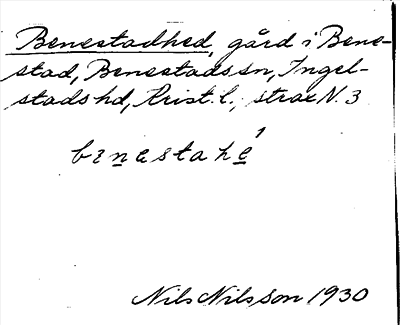 Benestadhed, gård i Bene-
stad, Benestads sn, Ingel-
stads hd, Krist. l., strax N. 3
bɪnestahe ́
Nils Nilsson 1930